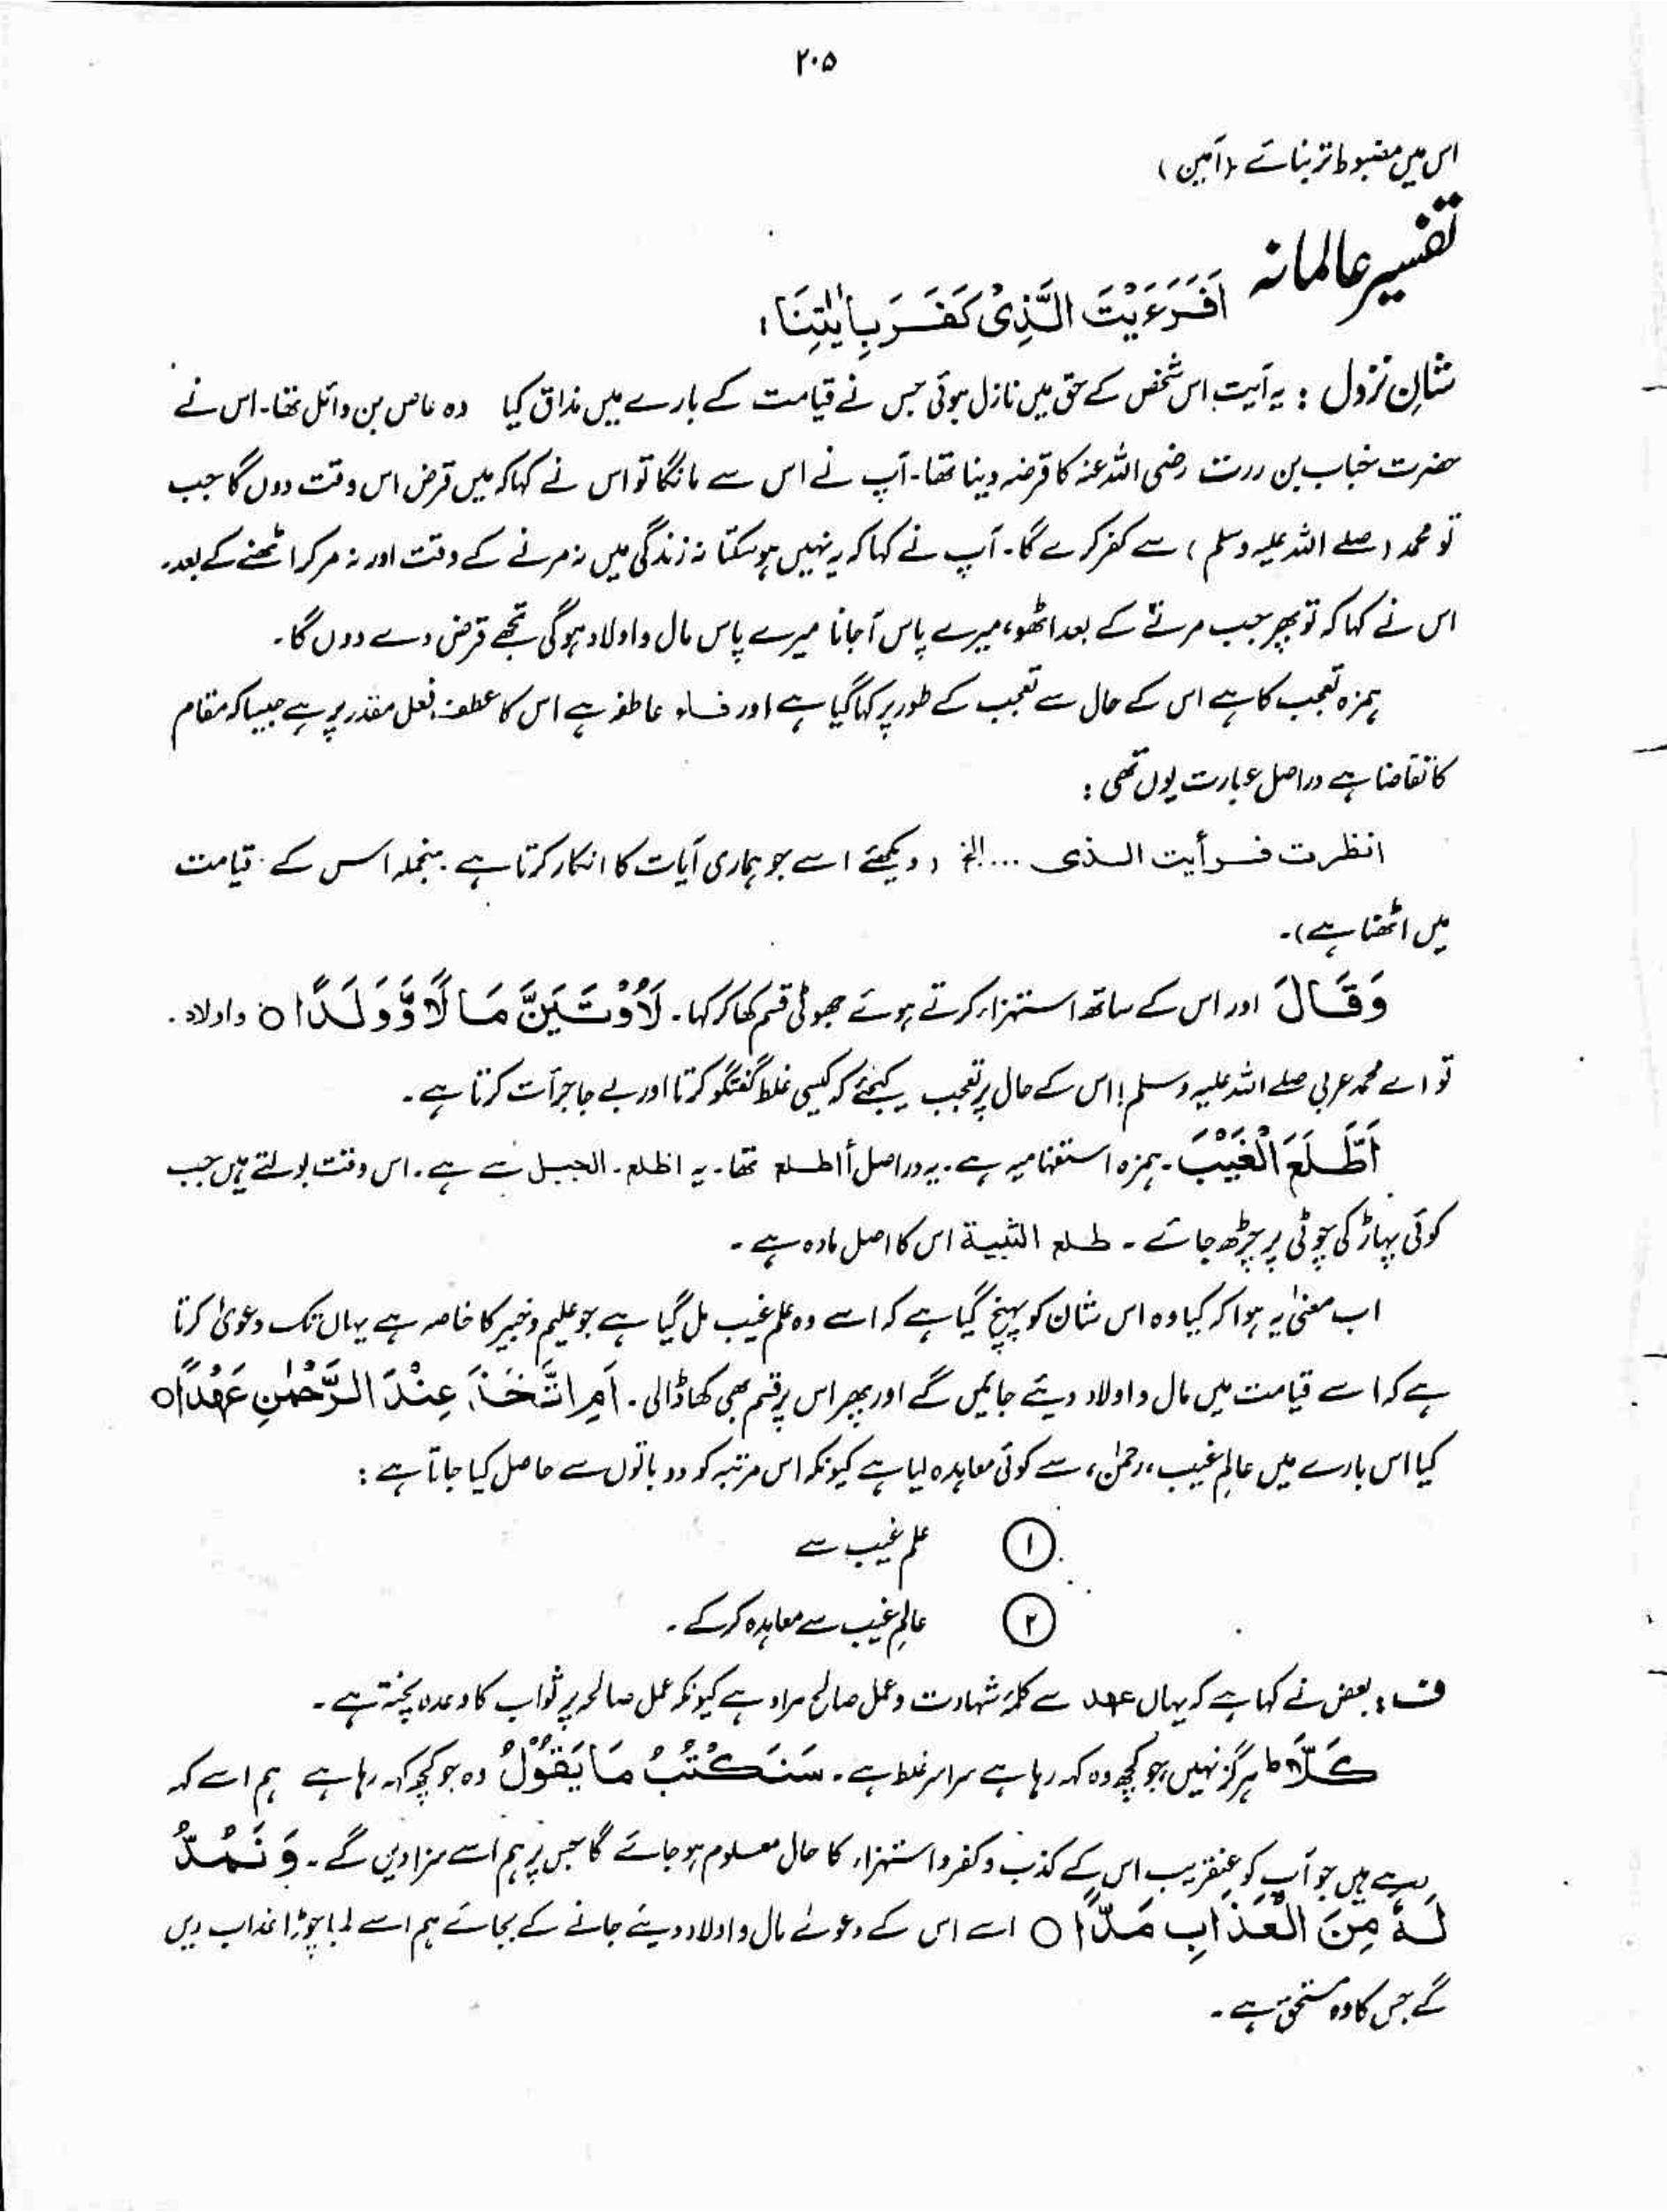 ۲۰۵
اس میں مضبوط تر بنائے (آمین)
تفسیر عالمانہ
اَفَرَءَیْتَ الَّذِیْ کَفَرَ بِاٰیٰتِنَا:
شانِ نزول : یہ آیت اس شخص کے حق میں نازل ہوئی جس نے قیامت کے بارے میں مذاق کیا وہ عاص بن وائل تھا۔ اس نے
حضرت خباب بن ررت رضی اللہ عنہ کا قرضہ دینا تھا۔ آپ نے اس سے مانگا تو اس نے کہا کہ میں قرض اس وقت دوں گا جب
تو محمد (صلے اللہ علیہ وسلم) سے کفر کرے گا۔ آپ نے کہا کہ یہ نہیں ہو سکتا نہ زندگی میں نہ مرنے کے وقت اور نہ مرکر اٹھنے کے بعد۔
اس نے کہا کہ تو پھر جب مرنے کے بعد اٹھو، میرے پاس آجانا میرے پاس مال و اولاد ہوگی تجھے قرض دے دوں گا۔
ہمزہ تعجب کا ہے اس کے حال سے تعجب کے طور پر کہا گیا ہے اور فاء عاطفہ ہے اس کا عطف فعل مقدر پر ہے جیسا کہ مقام
کا تقاضا ہے دراصل عبارت یوں تھی :
انظرت فرأیت الذی ... الخ (دیکھئے اسے جو ہماری آیات کا انکار کرتا ہے۔ منجملہ اس کے قیامت
میں اٹھنا ہے)۔
وَقَالَ اور اس کے ساتھ استہزاء کرتے ہوئے جھوٹی قسم کھا کر کہا۔ لَاُوْتَیَنَّ مَالًا وَّوَلَدًا ○ و اولاد۔
تو اے محمد عربی صلے اللہ علیہ وسلم! اس کے حال پر تعجب کیجئے کہ کیسی غلط گفتگو کرتا اور بے جا جرأت کرتا ہے۔
اَطَّلَعَ الْغَیْبَ۔ ہمزہ استفہامیہ ہے۔ یہ دراصل أاطلع تھا۔ یہ اطلع۔ الجبل سے ہے۔ اس وقت بولتے ہیں جب
کوئی پہاڑ کی چوٹی پر چڑھ جائے۔ طلع الثنیة اس کا اصل مادہ ہے۔
اب معنیٰ یہ ہوا کہ کیا وہ اس شان کو پہنچ گیا ہے کہ اسے وہ علم غیب مل گیا ہے جو علیم و خبیر کا خاصہ ہے یہاں تک دعویٰ کرتا
ہے کہ اسے قیامت میں مال و اولاد دیئے جائیں گے اور پھر اس پر قسم بھی کھا ڈالی۔ اَمِ اتَّخَذَ عِنْدَ الرَّحْمٰنِ عَهْدًا ○
کیا اس بارے میں عالمِ غیب، رحمٰن، سے کوئی معاہدہ لیا ہے کیونکہ اس مرتبہ کو دو باتوں سے حاصل کیا جاتا ہے :
① علم غیب سے
② عالمِ غیب سے معاہدہ کرکے۔
ف : بعض نے کہا ہے کہ یہاں عہد سے کلمۂ شہادت و عمل صالح مراد ہے کیونکہ عمل صالحہ پر ثواب کا وعدہ پختہ ہے۔
کَلَّا ط ہرگز نہیں، جو کچھ وہ کہہ رہا ہے سراسر غلط ہے۔ سَنَکْتُبُ مَا یَقُوْلُ وہ جو کچھ کہہ رہا ہے ہم اسے کہہ
رہے ہیں جو آپ کو عنقریب اس کے کذب و کفر و استہزاء کا حال معلوم ہو جائے گا جس پر ہم اسے سزا دیں گے۔ وَ نَمُدُّ
لَهٗ مِنَ الْعَذَابِ مَدًّا ○ اسے اس کے دعوئے مال و اولاد دیئے جانے کے بجائے ہم اسے لمبا چوڑا عذاب دیں
گے جس کا وہ مستحق ہے۔